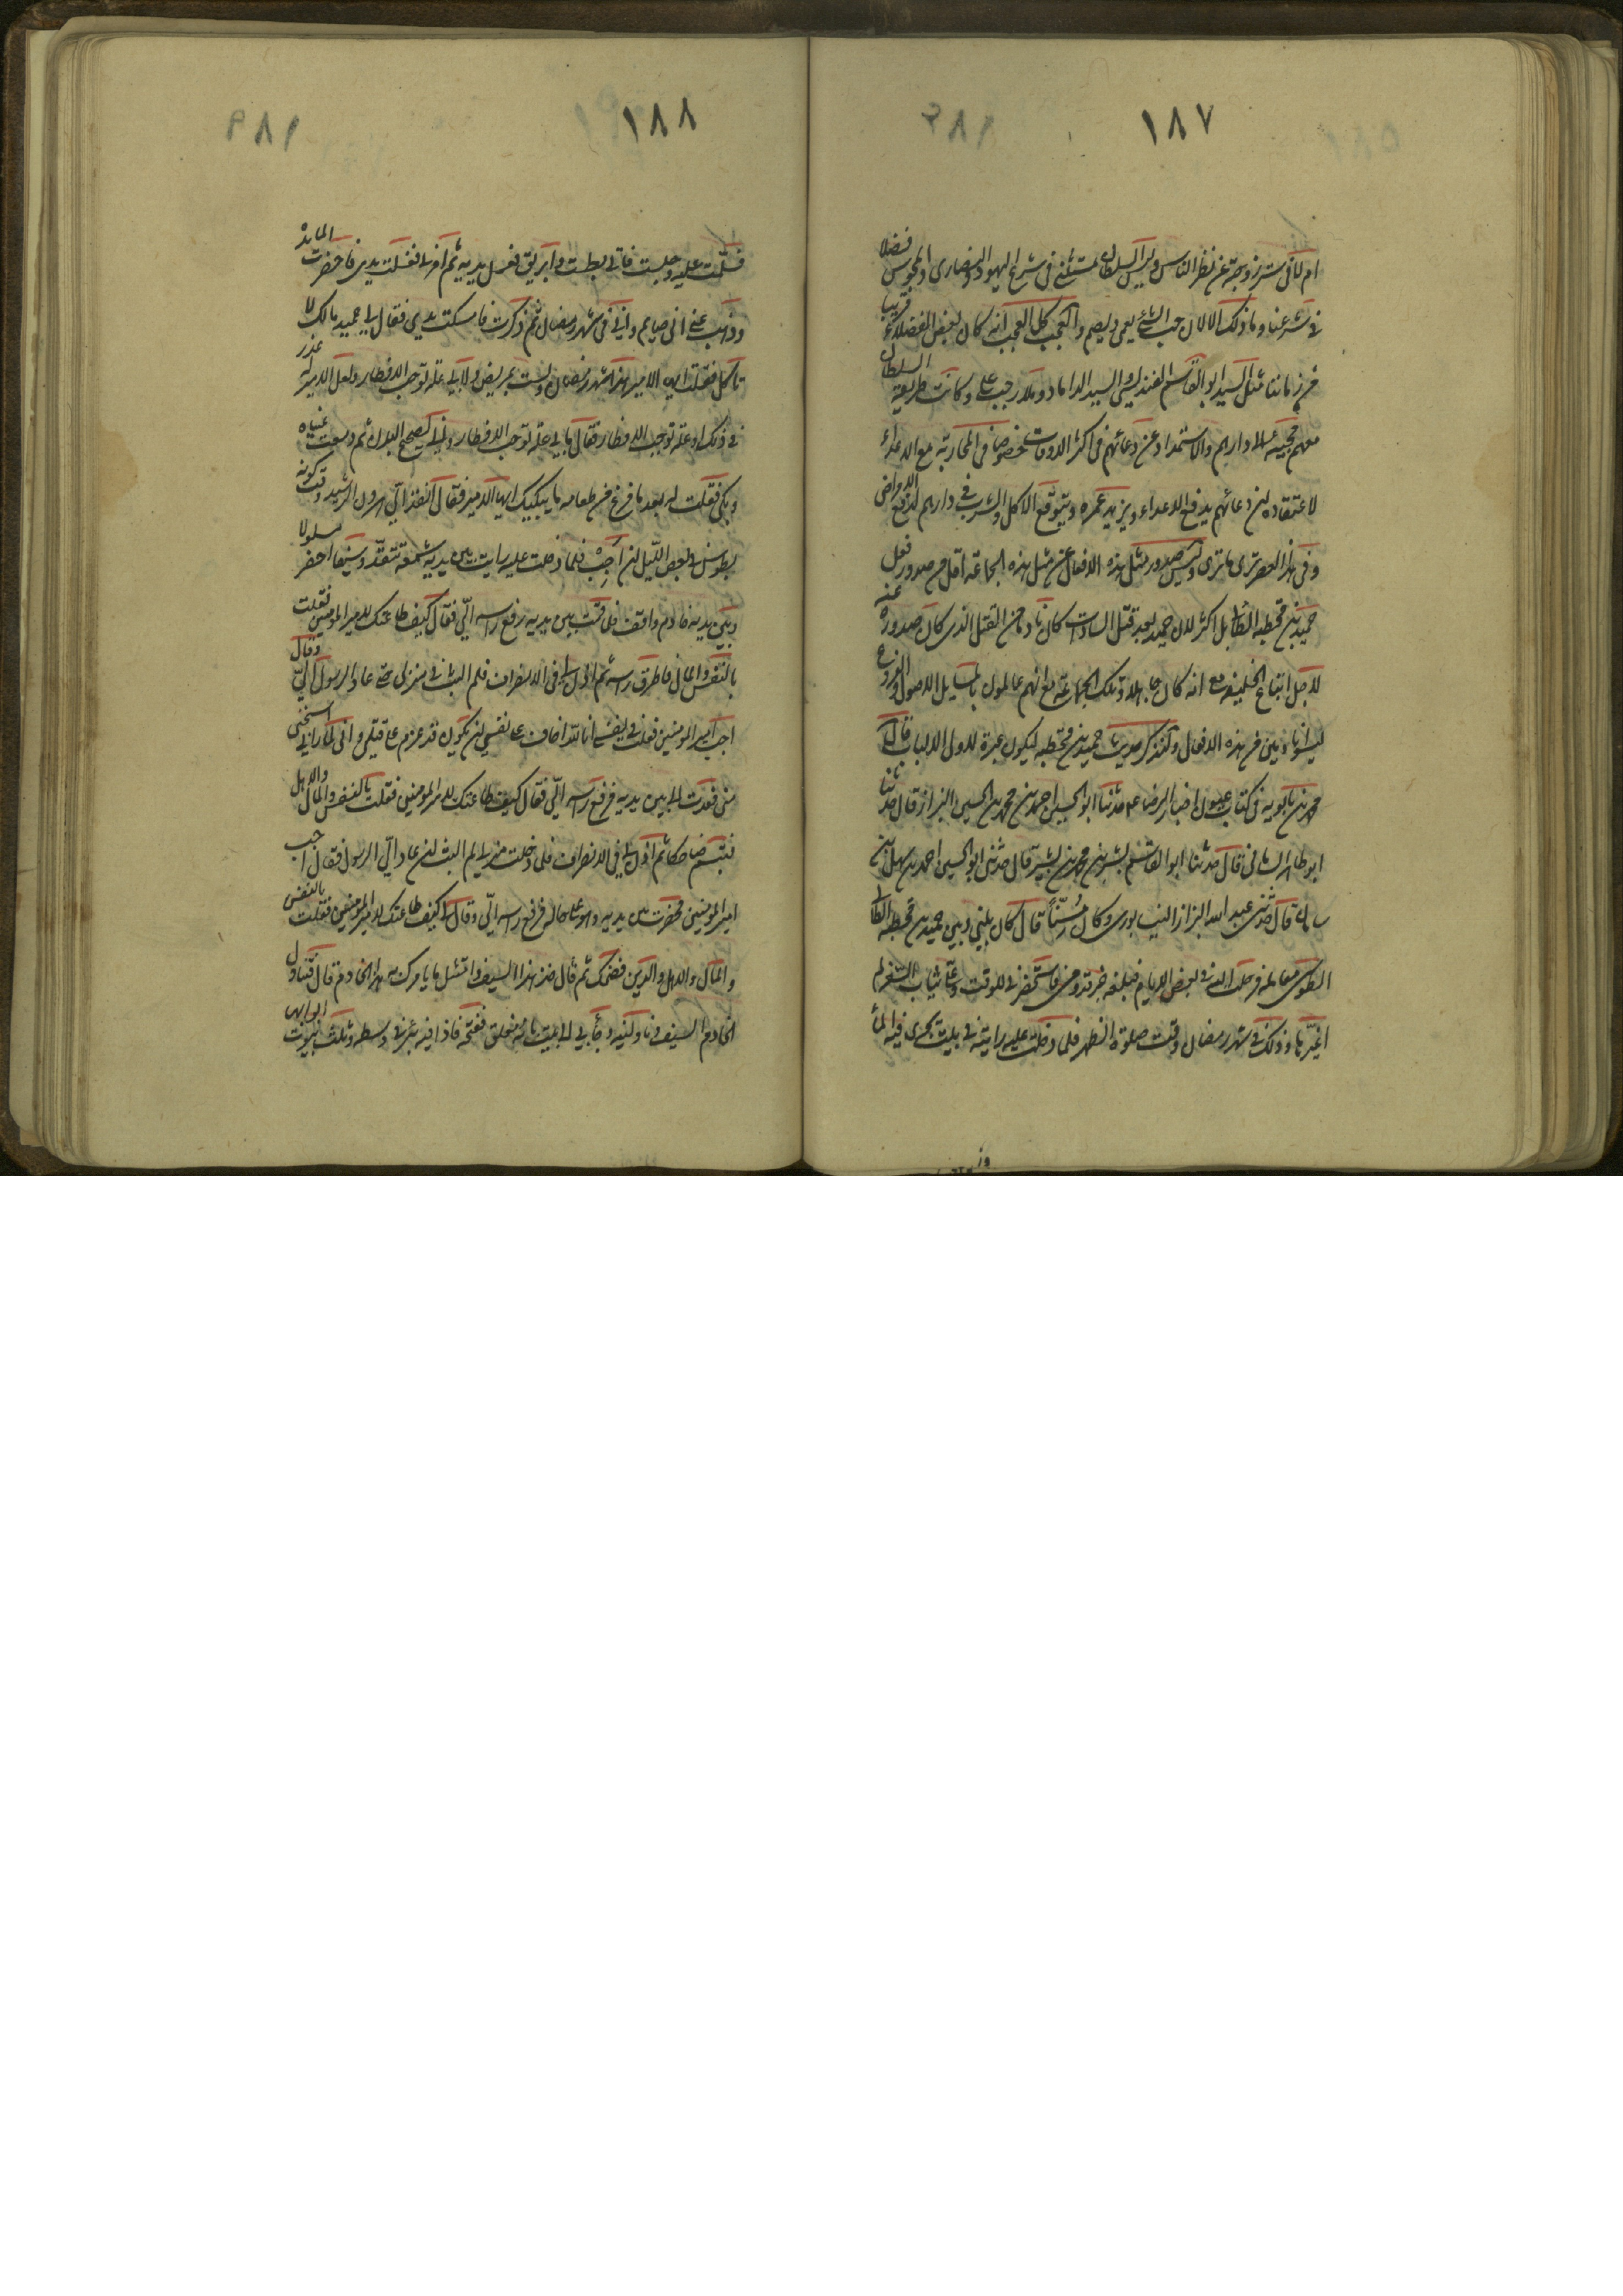 ١٨٧
ام لا في ستر زوجته عن نظر الناس وليس السلطان مستثنى في شرع اليهود والنصارى والمجوس فضلا
في شرعنا وما ذلك الا لان حب الشئ يعمي ويصم والعجب كل العجب انه كان لبعض الفضلاء قريبا
من زماننا مثل السيد ابو القاسم الفندرسي والسيد الداماد وملا رجب علي وكانت طريقة السلطان
معهم مجيئه الى دارهم والاستمداد عن دعائهم في اكثر الاوقات خصوصا في المحاربة مع الاعداء
لاعتقاده ان دعائهم يدفع الاعداء ويزيد عمره ويتوقع الاكل والشرب في دارهم لدفع الامراض
وفي هذا العصر ترى ما ترى وليس صدور مثل هذه الافعال عن مثل هذه الجماعة اقل من صدور فعل
حميد بن قحطبة الطائي بل اكثر لان حميد بعد قتل السادات كان نادما من القتل الذي كان صدوره عنه
لاجل اتباع الخليفة مع انه كان جاهلا وتلك الجماعة مع انهم عالمون بالمسايل الاصول والفروع
ليسوا نادمين من هذه الافعال ولنذكر حديث حميد بن قحطبة ليكون عبرة لاولى الالباب قال
محمد بن بابويه في كتاب عيون اخبار الرضا ع حدثنا ابو الحسين احمد بن محمد بن الحسين البزاز قال حدثنا
ابو طاهر الساماني قال حدثنا ابو القاسم بشر بن محمد بن بشير قال حدثني ابو الحسين احمد بن سهل بن
ماهان قال حدثني عبد الله البزاز النيسابوري وكان مسنا قال كان بيني وبين حميد بن قحطبة الطائي
الطوسي معاملة فرحلت اليه في بعض الايام فبلغه خبر قدومي فاستحضرني للوقت وعلي ثياب السفر لم
اغيرها وذلك في شهر رمضان وقت صلوة الظهر فلما دخلت عليه رايته في بيت يجري فيه الماء
١٨٨
فسلمت عليه وجلست فاتي بطست وابريق فغسل يديه ثم امرني فغسلت يدي فاحضرت المايدة
وذهب عني اني صايم واني في شهر رمضان ثم ذكرت فامسكت يدي فقال لي حميد مالك لا
تاكل فقلت ايها الامير هذا شهر رمضان ولست بمريض ولا بي علة توجب الافطار ولعل الامير له عذر
في ذلك او علة توجب الافطار فقال ما بي علة توجب الافطار واني لصحيح البدن ثم دمعت عيناه
وبكى فقلت له بعد ما فرغ من طعامه ما يبكيك ايها الامير فقال انفذ الي هرون الرشيد وقت كونه
بطوس في بعض الليل ان اجب فلما دخلت عليه رايت بين يديه شمعة تتقد وسيفا اخضر مسلولا
وبين يديه خادم واقف فلما قمت بين يديه رفع راسه الي فقال كيف طاعتك لامير المومنين فقلت
بالنفس والمال فاطرق راسه ثم اذن لي في الانصراف فلم البث في منزلي حتى عاد الرسول الي وقال
اجب امير المومنين فقلت في نفسي انا لله اخاف على نفسي ان يكون قد عزم على قتلي وانى لما راني استحيى
مني فعدت الى بين يديه فرفع راسه الي فقال كيف طاعتك لامير المومنين فقلت بالنفس والمال والاهل
فتبسم ضاحكا ثم اذن لي في الانصراف فلما دخلت منزلي لم البث ان عاد الي الرسول فقال اجب
امير المومنين فحضرت بين يديه وهو على حاله فرفع راسه الي وقال لي كيف طاعتك لامير المومنين فقلت بالنفس
والمال والاهل والدين فضحك ثم قال خذ هذا السيف وامتثل ما يامرك به هذا الخادم قال فتناول
الخادم السيف وناولنيه وجاء بي الى بيت بابه مغلق ففتحه فاذا فيه بئر في وسطه وثلثة بيوت ابوابها